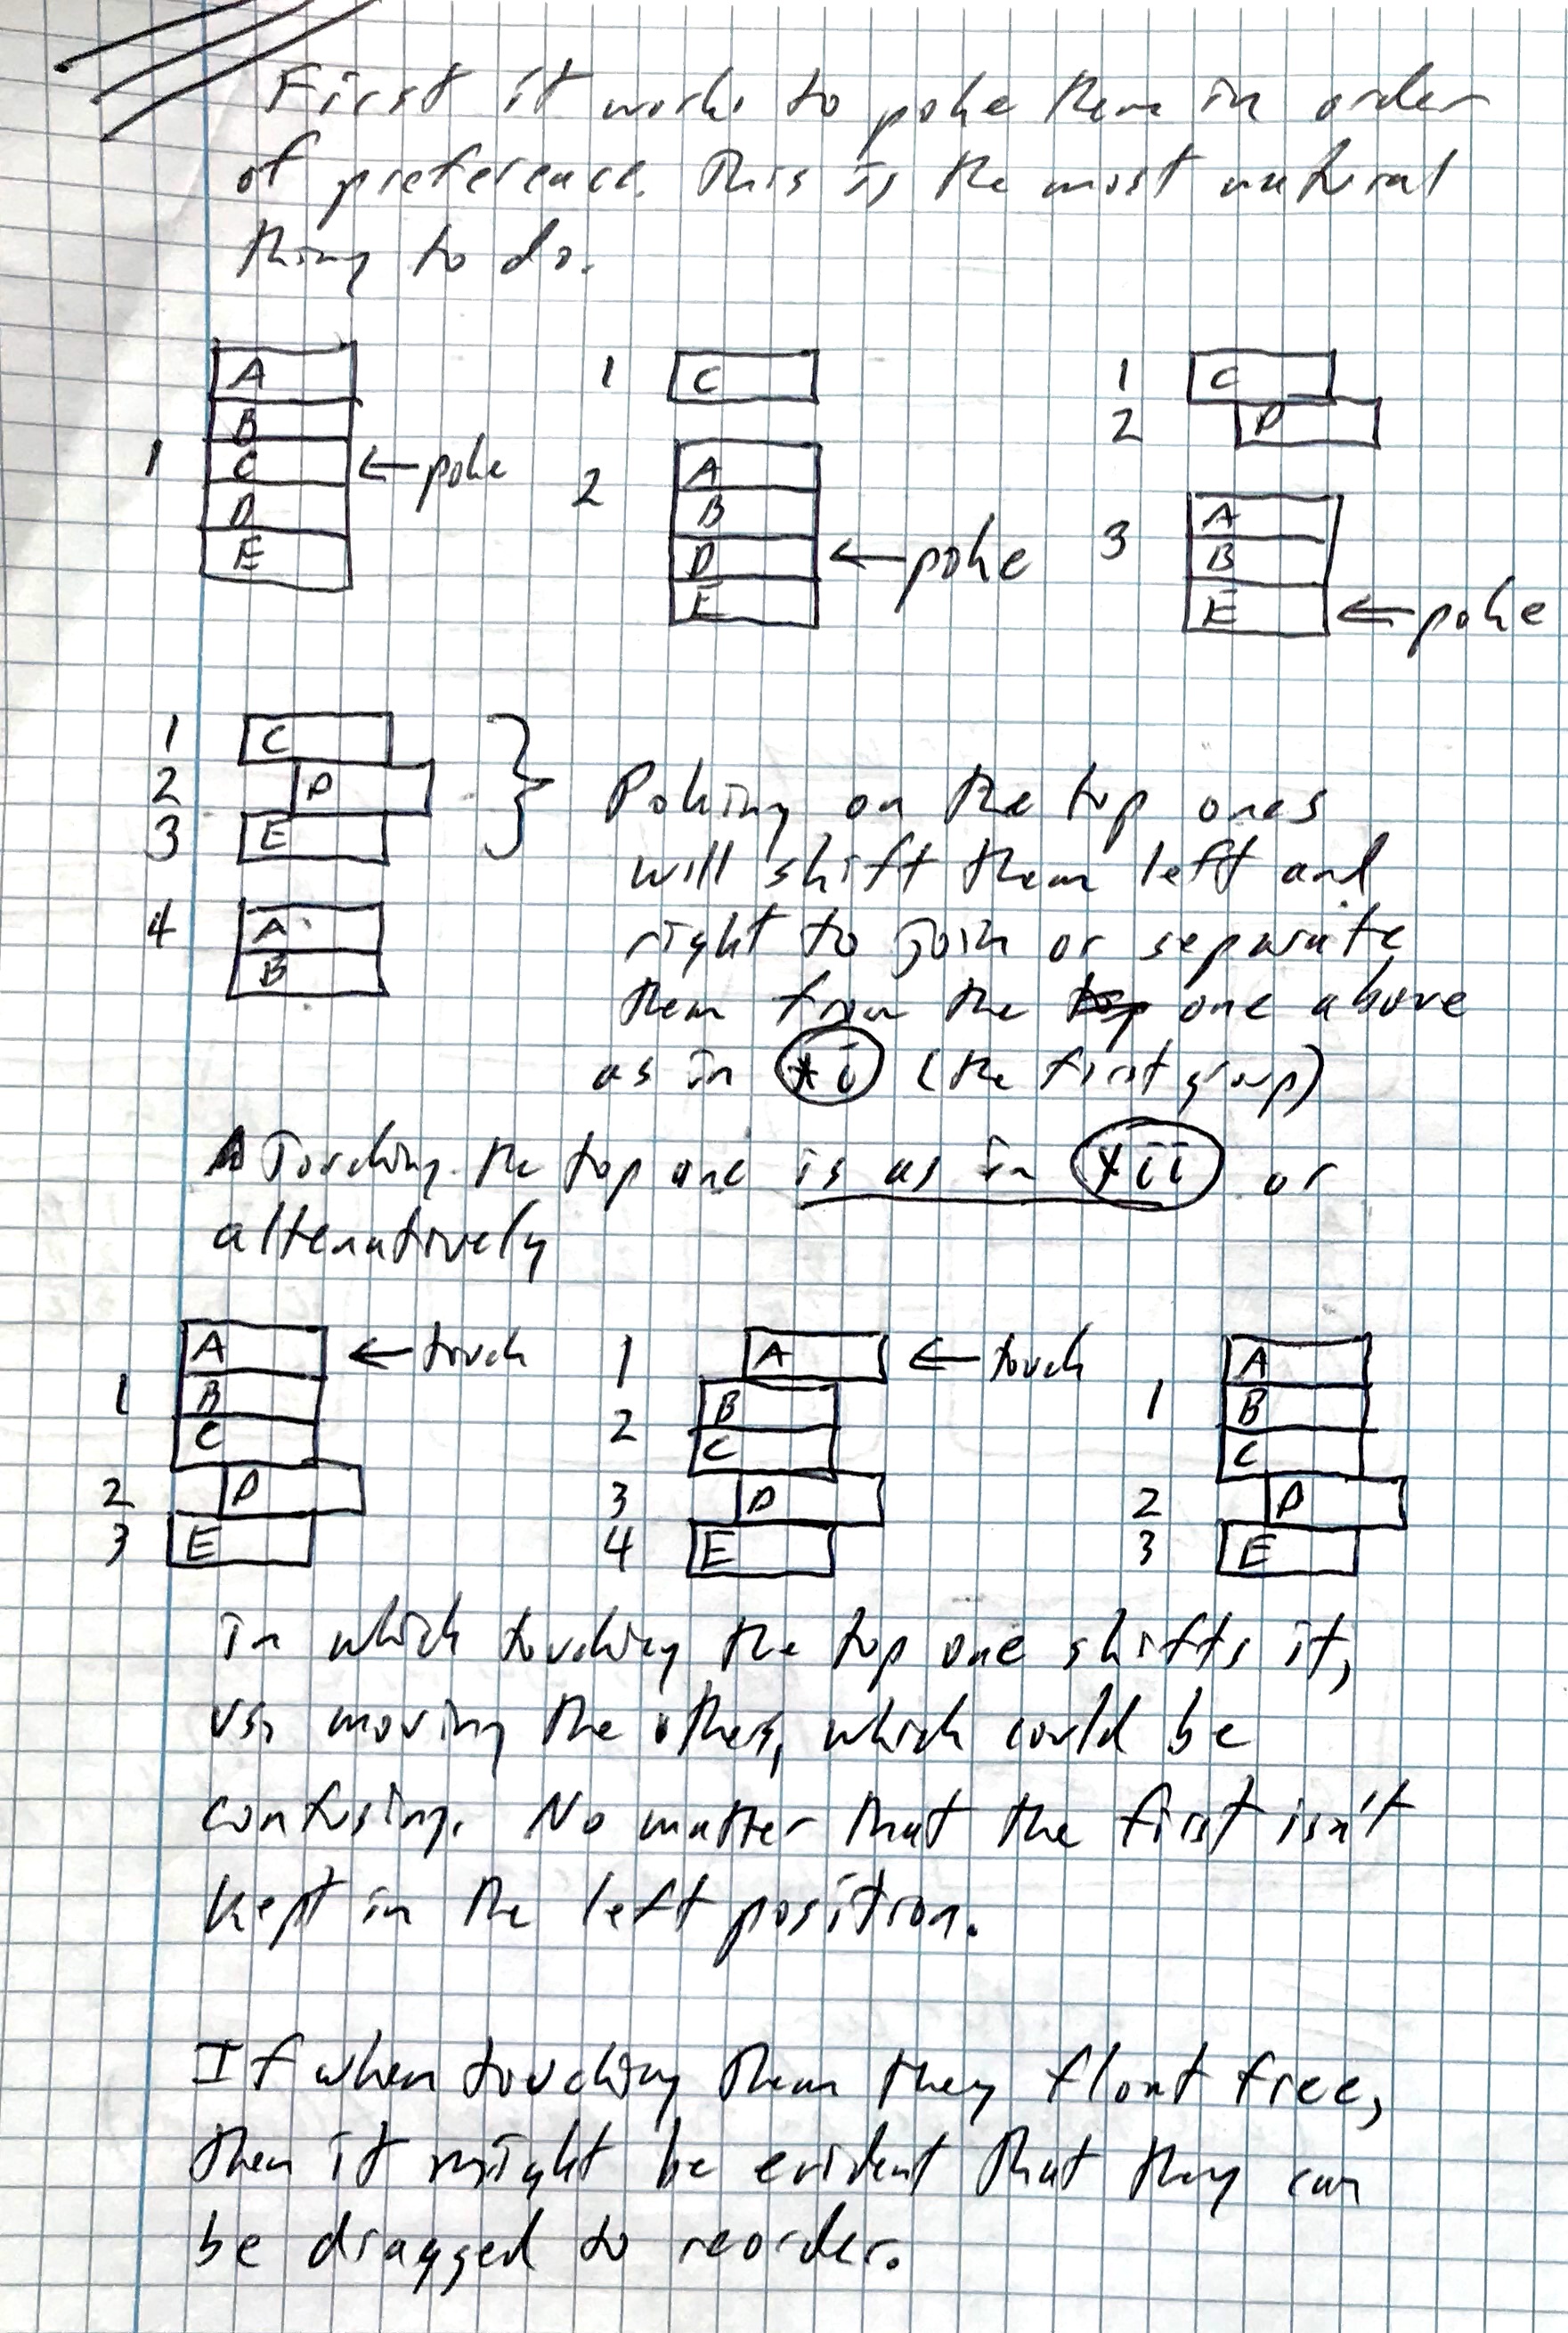 First it works to poke them in order
of preference. This is the most natural
thing to do.
A
B
1 C ← poke
D
E
1 C
2 A
B
D ← poke
E
1 C
2 D
A
3 B
E ← poke
1 C
2 D
3 E
4 A
B
Poking on the top ones
will shift them left and
right to join or separate
them from the one above
as in *i (the first group)
Touching the top one is as in *ii or
alternatively
A ← touch
1 B
C
2 D
3 E
1 A ← touch
B
2 C
3 D
4 E
A
1 B
C
2 D
3 E
in which touching the top one shifts it,
vs. moving the others, which could be
confusing. No matter that the first isn't
kept in the left position.
If when touching them they float free,
then it might be evident that they can
be dragged to reorder.